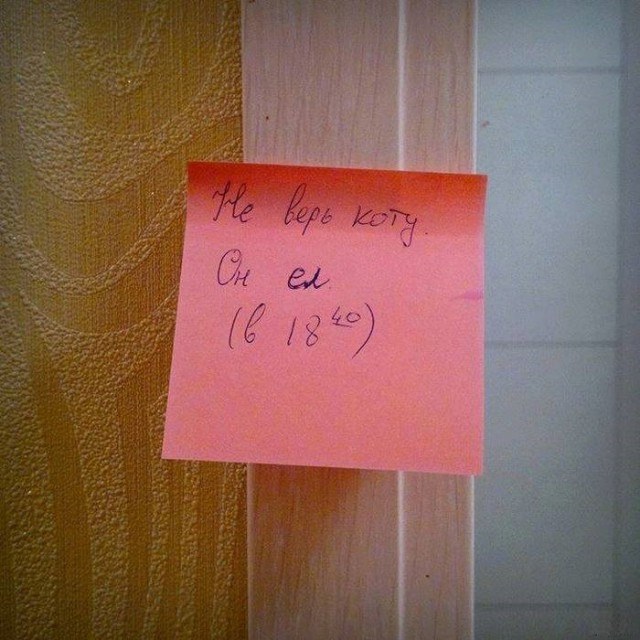 Не верь коту.
Он ел.
(в 18 40)